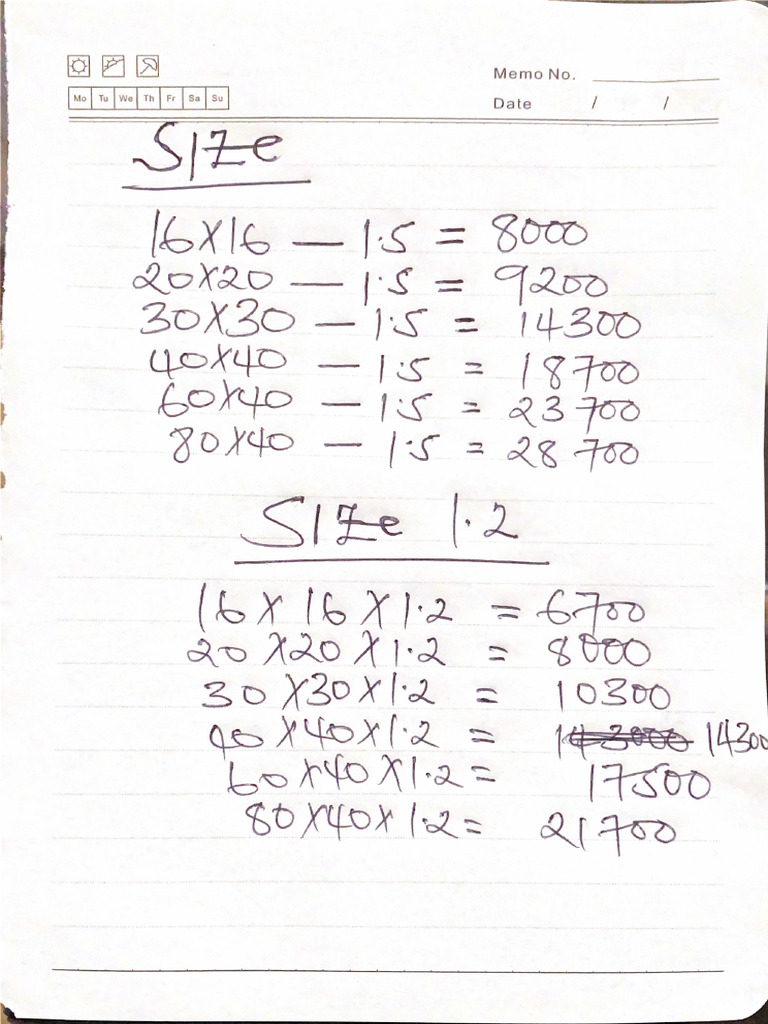 Memo No.
Mo Tu We Th Fr Sa Su
Date / /
SIZe
16X16 — 1.5 = 8000
20X20 — 1.5 = 9200
30X30 — 1.5 = 14300
40X40 — 1.5 = 18700
60X40 — 1.5 = 23700
80X40 — 1.5 = 28700
SIZe 1.2
16 X 16 X 1.2 = 6700
20 X20 X 1.2 = 8000
30 X30 X 1.2 = 10300
40 X40 X 1.2 = 143000 14300
60 X40 X 1.2 = 17500
80 X40 X 1.2 = 21700